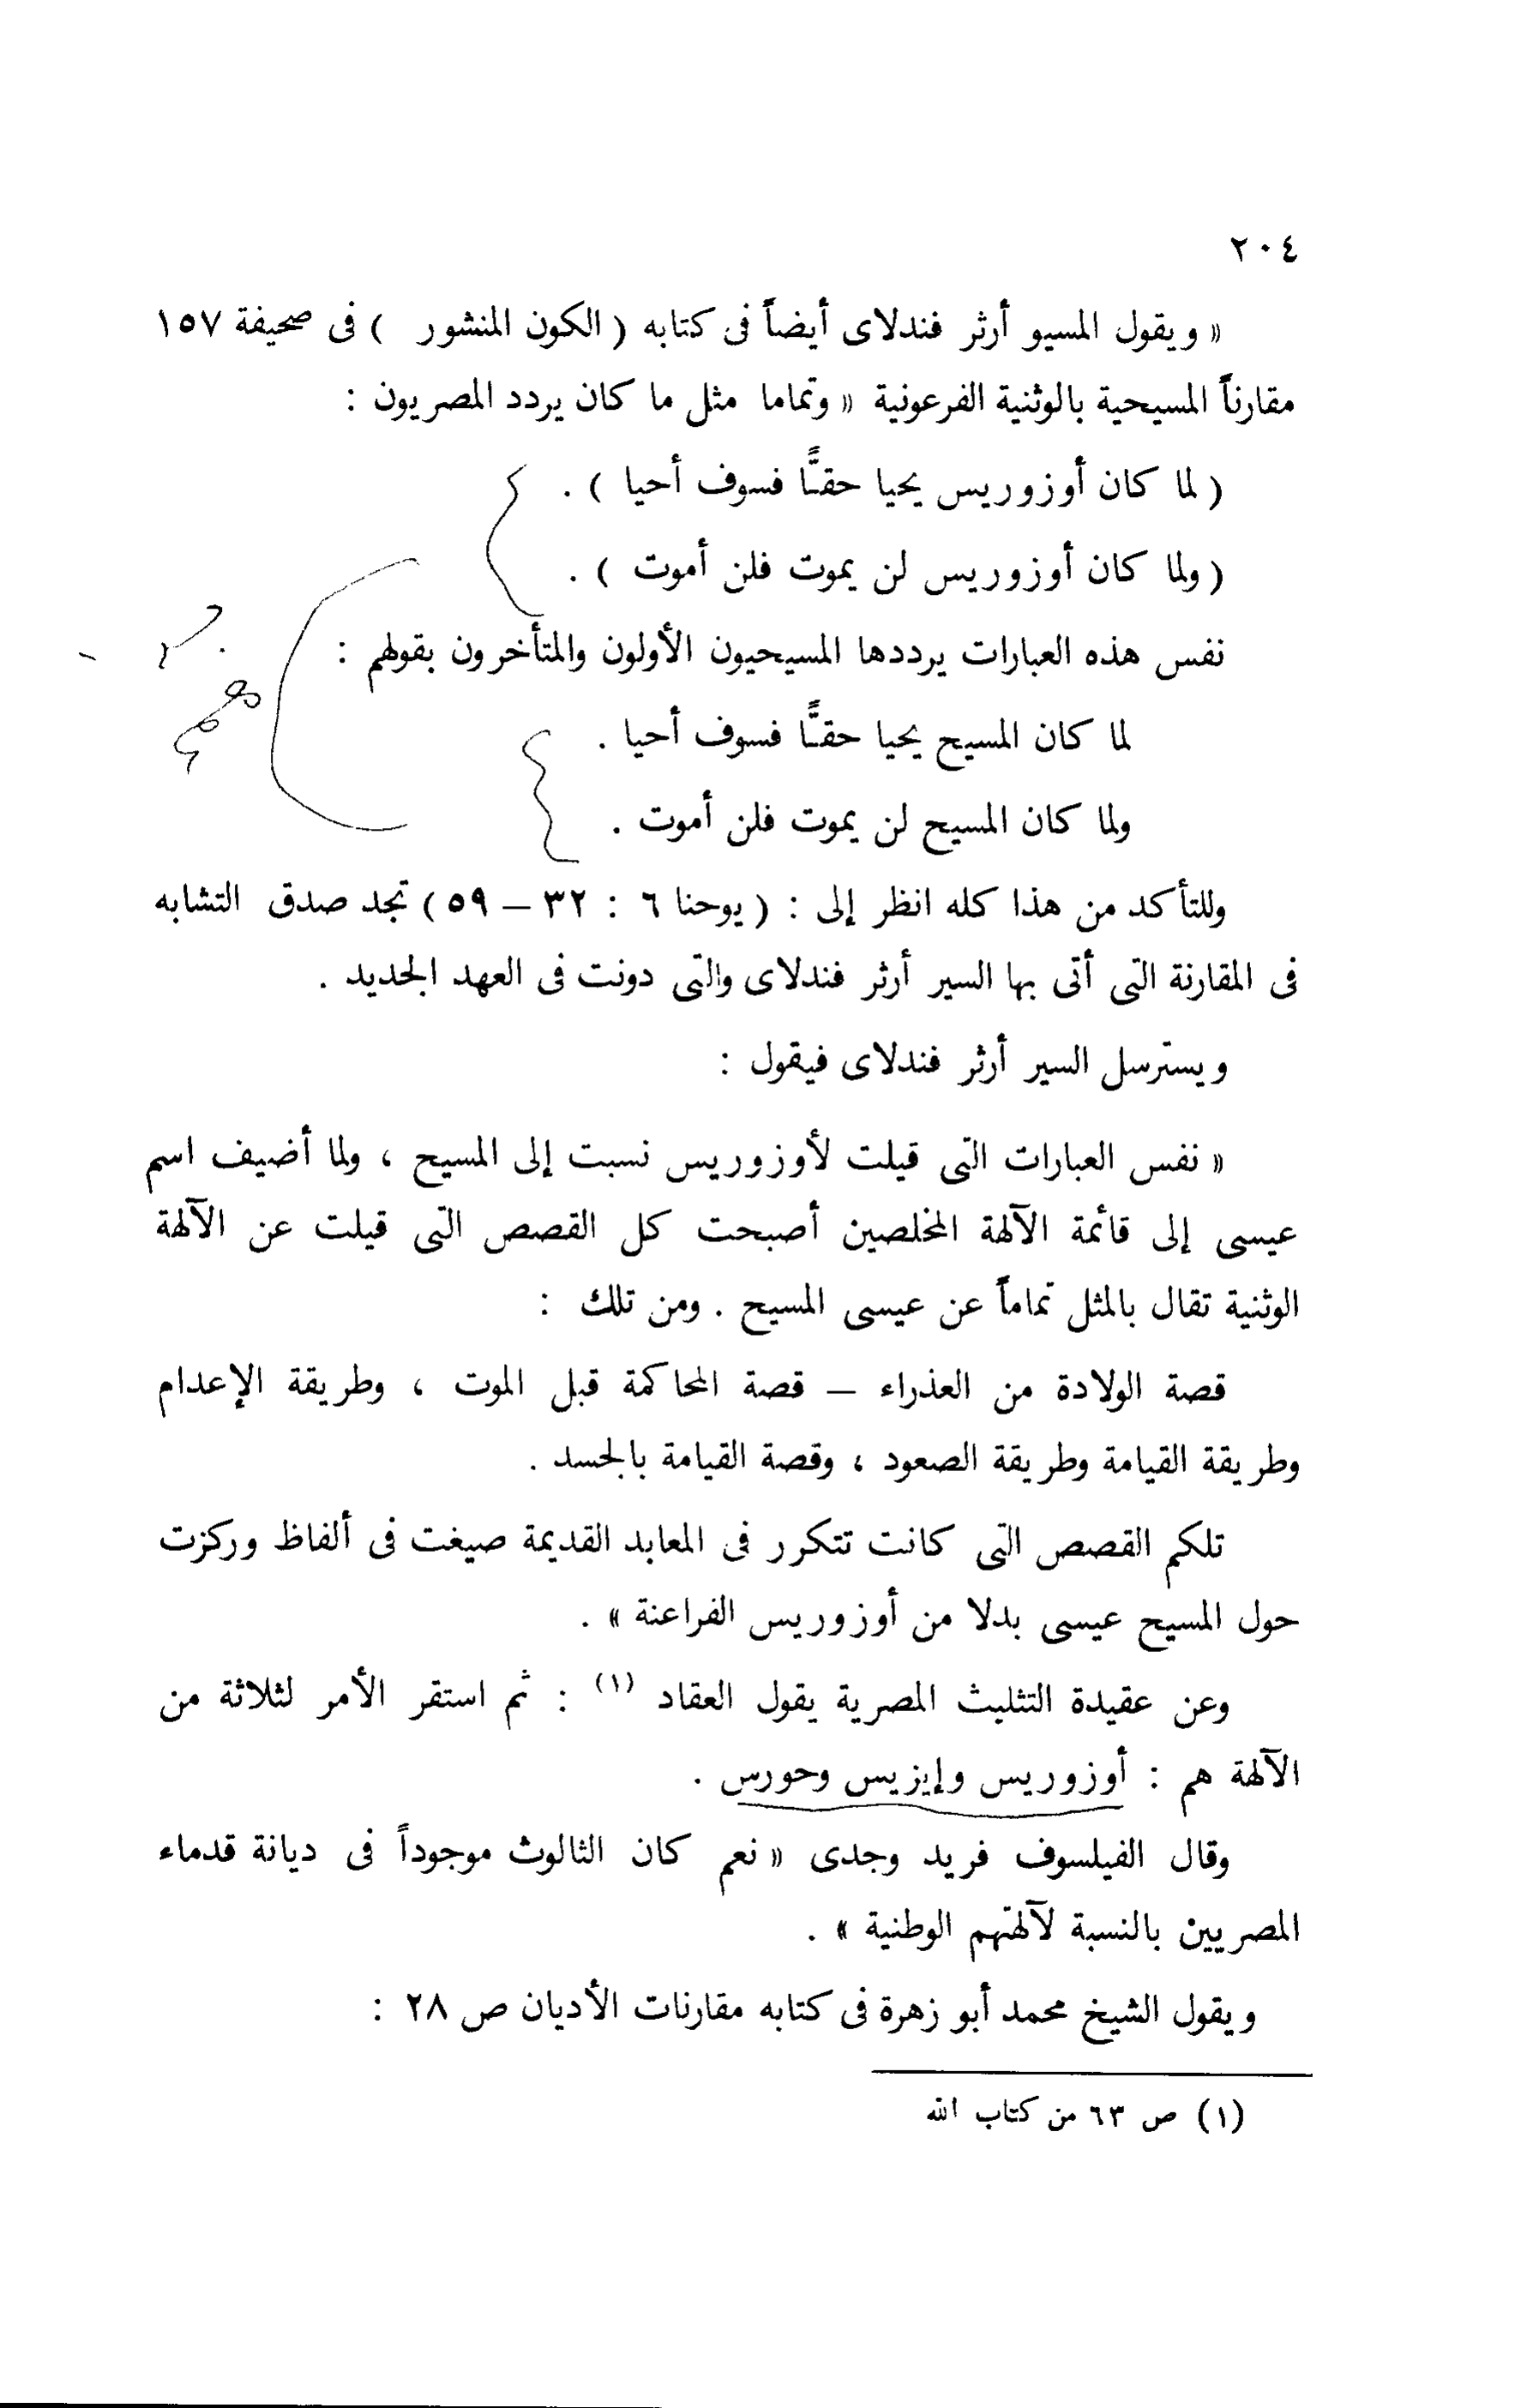 ٢٠٤
« ويقول المسيو أرثر فندلاى أيضاً فى كتابه ( الكون المنشور ) فى صحيفة ١٥٧
مقارناً المسيحية بالوثنية الفرعونية « وتماما مثل ما كان يردد المصريون :
( لما كان أوزوريس يحيا حقًّا فسوف أحيا ) .
( ولما كان أوزوريس لن يموت فلن أموت ) .
نفس هذه العبارات يرددها المسيحيون الأولون والمتأخرون بقولهم :
لما كان المسيح يحيا حقًّا فسوف أحيا .
ولما كان المسيح لن يموت فلن أموت .
وللتأكد من هذا كله انظر إلى : ( يوحنا ٦ : ٣٢ – ٥٩ ) تجد صدق التشابه
فى المقارنة التى أتى بها السير أرثر فندلاى والتى دونت فى العهد الجديد .
ويسترسل السير أرثر فندلاى فيقول :
« نفس العبارات التى قيلت لأوزوريس نسبت إلى المسيح ، ولما أضيف اسم
عيسى إلى قائمة الآلهة المخلصين أصبحت كل القصص التى قيلت عن الآلهة
الوثنية تقال بالمثل تماماً عن عيسى المسيح . ومن تلك :
قصة الولادة من العذراء – قصة المحاكمة قبل الموت ، وطريقة الإعدام
وطريقة القيامة وطريقة الصعود ، وقصة القيامة بالجسد .
تلكم القصص التى كانت تتكرر فى المعابد القديمة صيغت فى ألفاظ وركزت
حول المسيح عيسى بدلا من أوزوريس الفراعنة » .
وعن عقيدة التثليث المصرية يقول العقاد (١) : ثم استقر الأمر لثلاثة من
الآلهة هم : أوزوريس وإيزيس وحورس .
وقال الفيلسوف فريد وجدى « نعم كان الثالوث موجوداً فى ديانة قدماء
المصريين بالنسبة لآلهتهم الوطنية » .
ويقول الشيخ محمد أبو زهرة فى كتابه مقارنات الأديان ص ٢٨ :
(١) ص ٦٣ من كتاب الله